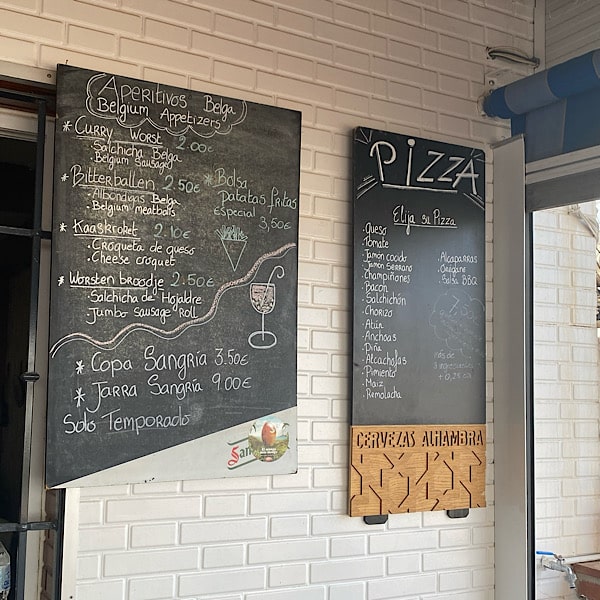 Aperitivos Belga
Belgium Appetizers
* Curry Worst 2.00€
Salchicha Belga
Belgium Sausage
* Bitterballen 2.50€
- Albondigas Belga
- Belgium meatballs
* Bolsa
Patatas fritas
Especial
3,50€
* Kaaskroket 2.10€
- Croqueta de queso
- Cheese croquet
* Worsten broodje 2.50€
Salchicha de Hojaldre
Jumbo Sausage Roll
* Copa Sangria 3.50€
* Jarra Sangria 9.00€
Solo Temporado
San
PIZZA
Elija su Pizza
- Queso
- Tomate
- Jamón cocido
- Jamón Serrano
- Champiñones
- Bacon
- Salchichón
- Chorizo
- Atún
- Anchoas
- Piña
- Alcachofas
- Pimiento
- Maiz
- Remolacha
- Alcaparras
- Oregano
- Salsa BBQ
más de
CERVEZAS ALHAMBRA